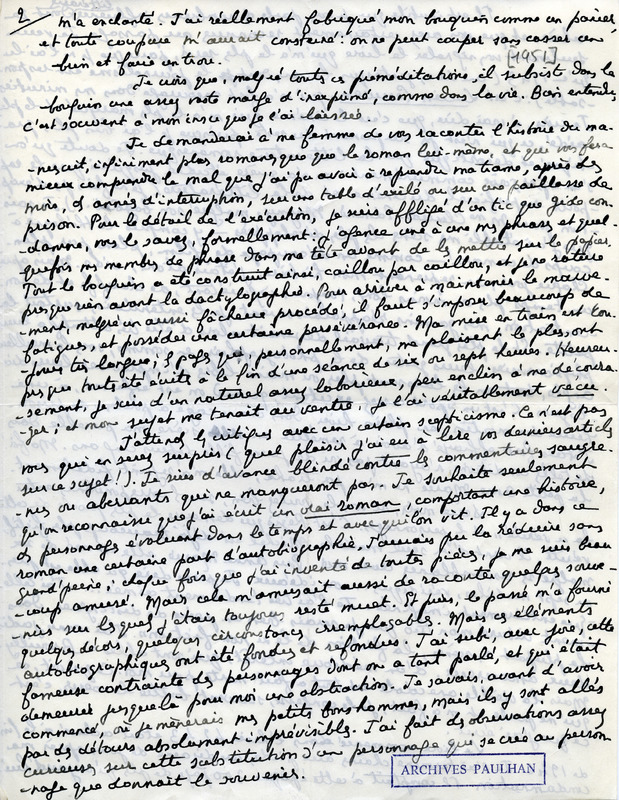 2/ m'a enchanté. J'ai réellement fabriqué mon bouquin comme un panier,
et toute coupure m'aurait consterné : on ne peut couper sans casser un
brin et faire un trou.
[1951]
Je crois que, malgré toutes ces préméditations, il subsiste dans le
bouquin une assez vaste marge d'inexprimé, comme dans la vie. Bien entendu,
c'est souvent à mon insu que je l'ai laissée.
Je demanderai à ma femme de vous raconter l'histoire du ma-
-nuscrit, infiniment plus romanesque que le roman lui-même, et qui vous fera
mieux comprendre le mal que j'ai pu avoir à reprendre ma trame, après des
mois, des années d'interruption, sur une table d'exilé ou sur une paillasse de
prison. Pour le détail de l'exécution, je suis affligé d'un tic que Gide con-
-damne, vous le savez, formellement : j'agence une à une mes phrases et quel-
quefois mes membres de phrase dans ma tête avant de les mettre sur le papier.
Tout le bouquin a été construit ainsi, caillou par caillou, et je ne rature
presque rien avant la dactylographie. Pour arriver à maintenir le mouve-
-ment, malgré un aussi fâcheux procédé, il faut s'imposer beaucoup de
fatigues, et posséder une certaine persévérance. Ma mise en train est tou-
-jours très longue ; les pages qui, personnellement, me plaisent le plus, ont
presque toutes été écrites à la fin d'une séance de six ou sept heures. Heureu-
-sement, je suis d'un naturel assez laborieux, peu enclin à me découra-
-ger, et mon sujet me tenait au ventre. Je l'ai véritablement vécu.
J'attends les critiques avec un certain scepticisme. Ce n'est pas
vous qui en serez surpris (quel plaisir j'ai eu à lire vos derniers articles
sur ce sujet !). Je suis d'avance blindé contre les commentaires saugre-
-nus ou aberrants qui ne manqueront pas. Je souhaite seulement
qu'on reconnaisse que j'ai écrit un vrai roman, comportant une histoire,
des personnages évoluant dans le temps et avec qui l'on vit. Il y a dans ce
roman une certaine part d'autobiographie. J'aurais pu la réduire sans
grand'peine ; chaque fois que j'ai inventé de toutes pièces, je me suis beau-
-coup amusé. Mais cela m'amusait aussi de raconter quelques souve-
-nirs sur lesquels j'étais toujours resté muet. Et puis, le passé m'a fourni
quelques décors, quelques circonstances irremplaçables. Mais ces éléments
autobiographiques ont été fondus et refondus. J'ai subi, avec joie, cette
fameuse contrainte des personnages dont on a tant parlé, et qui était
demeurée jusque là pour moi une abstraction. Je savais, avant d'avoir
commencé, où je mènerais mes petits bonshommes, mais ils y sont allés
par des détours absolument imprévisibles. J'ai fait des observations assez
curieuses sur cette substitution d'un personnage qui se crée au person-
-nage que donnait le souvenir.
ARCHIVES PAULHAN